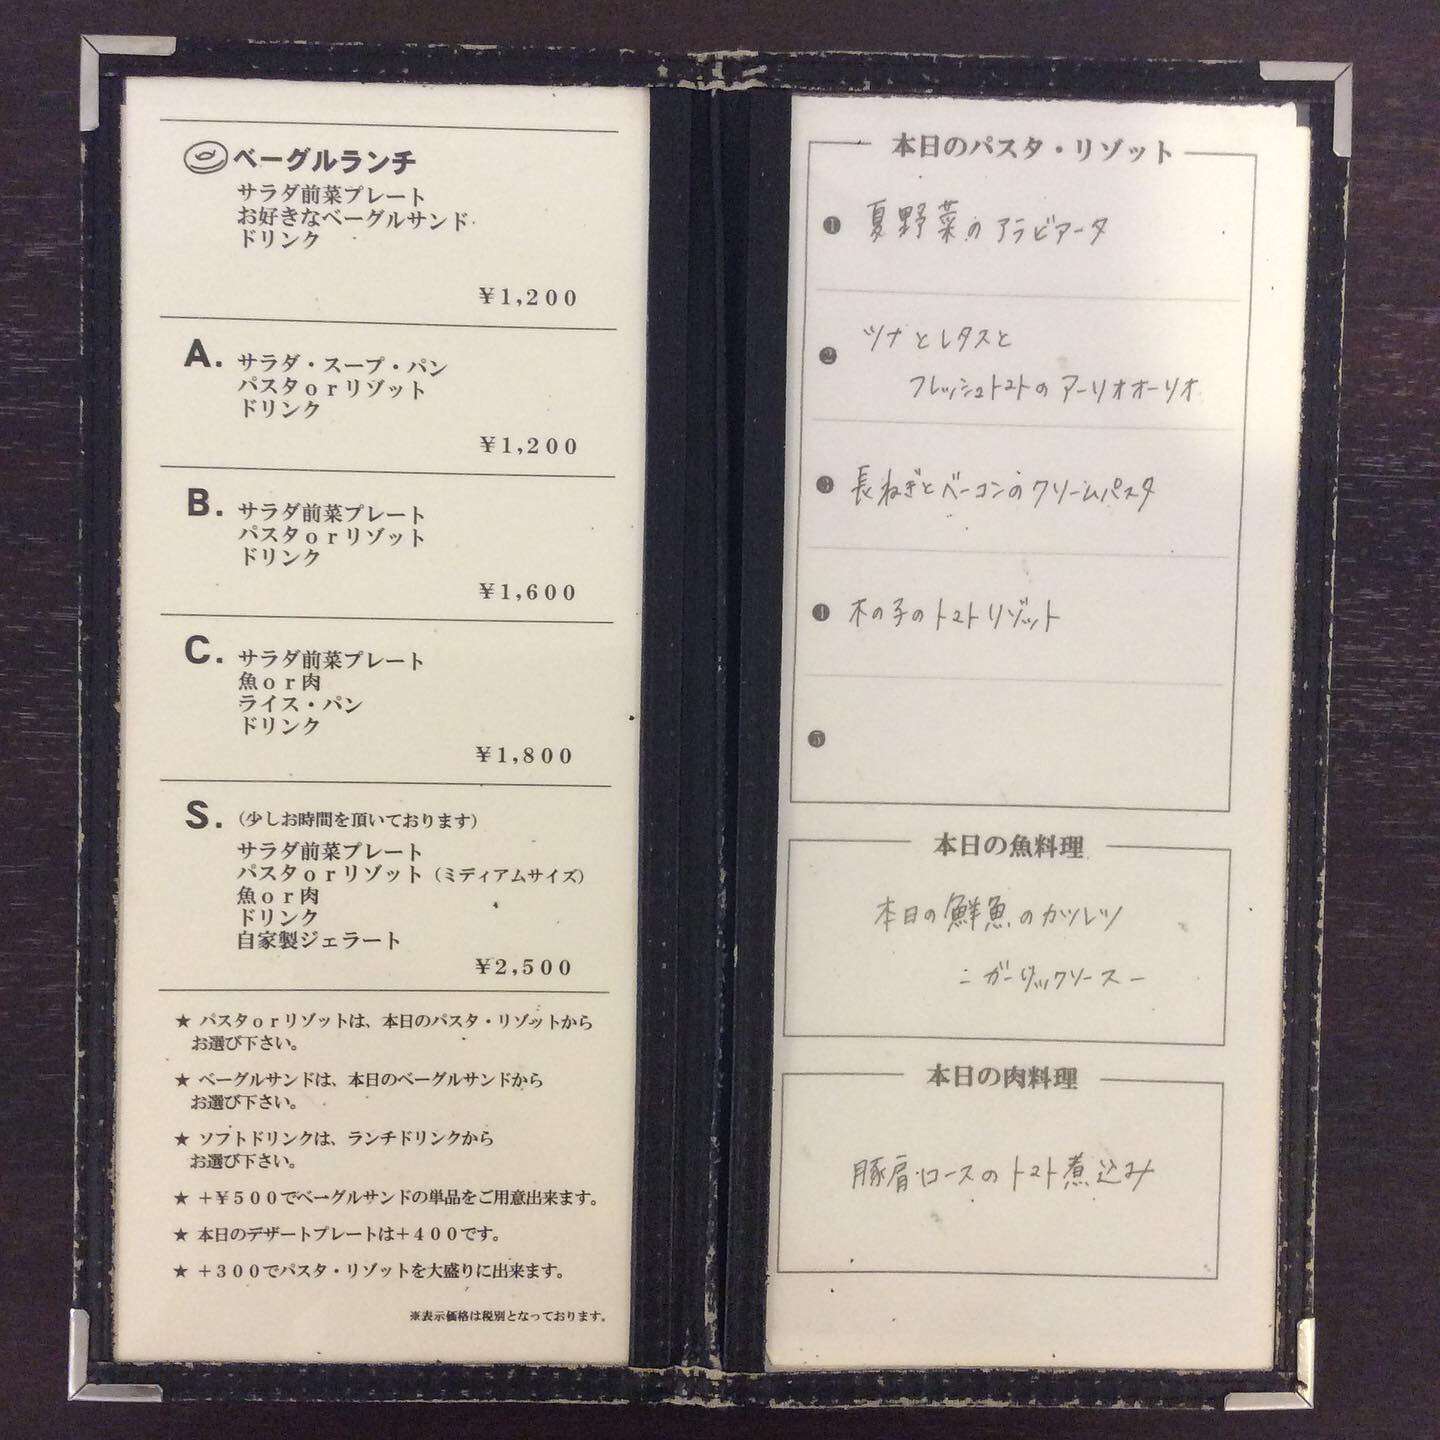 ベーグルランチ
サラダ前菜プレート
お好きなベーグルサンド
ドリンク
¥1,200
A.
サラダ・スープ・パン
パスタorリゾット
ドリンク
¥1,200
B.
サラダ前菜プレート
パスタorリゾット
ドリンク
¥1,600
C.
サラダ前菜プレート
魚or肉
ライス・パン
ドリンク
¥1,800
S.（少しお時間を頂いております）
サラダ前菜プレート
パスタorリゾット（ミディアムサイズ）
魚or肉
ドリンク
自家製ジェラート
¥2,500
★ パスタorリゾットは、本日のパスタ・リゾットから
お選び下さい。
★ ベーグルサンドは、本日のベーグルサンドから
お選び下さい。
★ ソフトドリンクは、ランチドリンクから
お選び下さい。
★ +¥500でベーグルサンドの単品をご用意出来ます。
★ 本日のデザートプレートは+400です。
★ +300でパスタ・リゾットを大盛りに出来ます。
※表示価格は税別となっております。
本日のパスタ・リゾット
❶ 夏野菜のアラビアータ
❷ ツナとレタスと
フレッシュトマトのアーリオオーリオ
❸ 長ねぎとベーコンのクリームパスタ
❹ 木の子のトマトリゾット
❺
本日の魚料理
本日の鮮魚のカツレツ
-ガーリックソース-
本日の肉料理
豚肩ロースのトマト煮込み